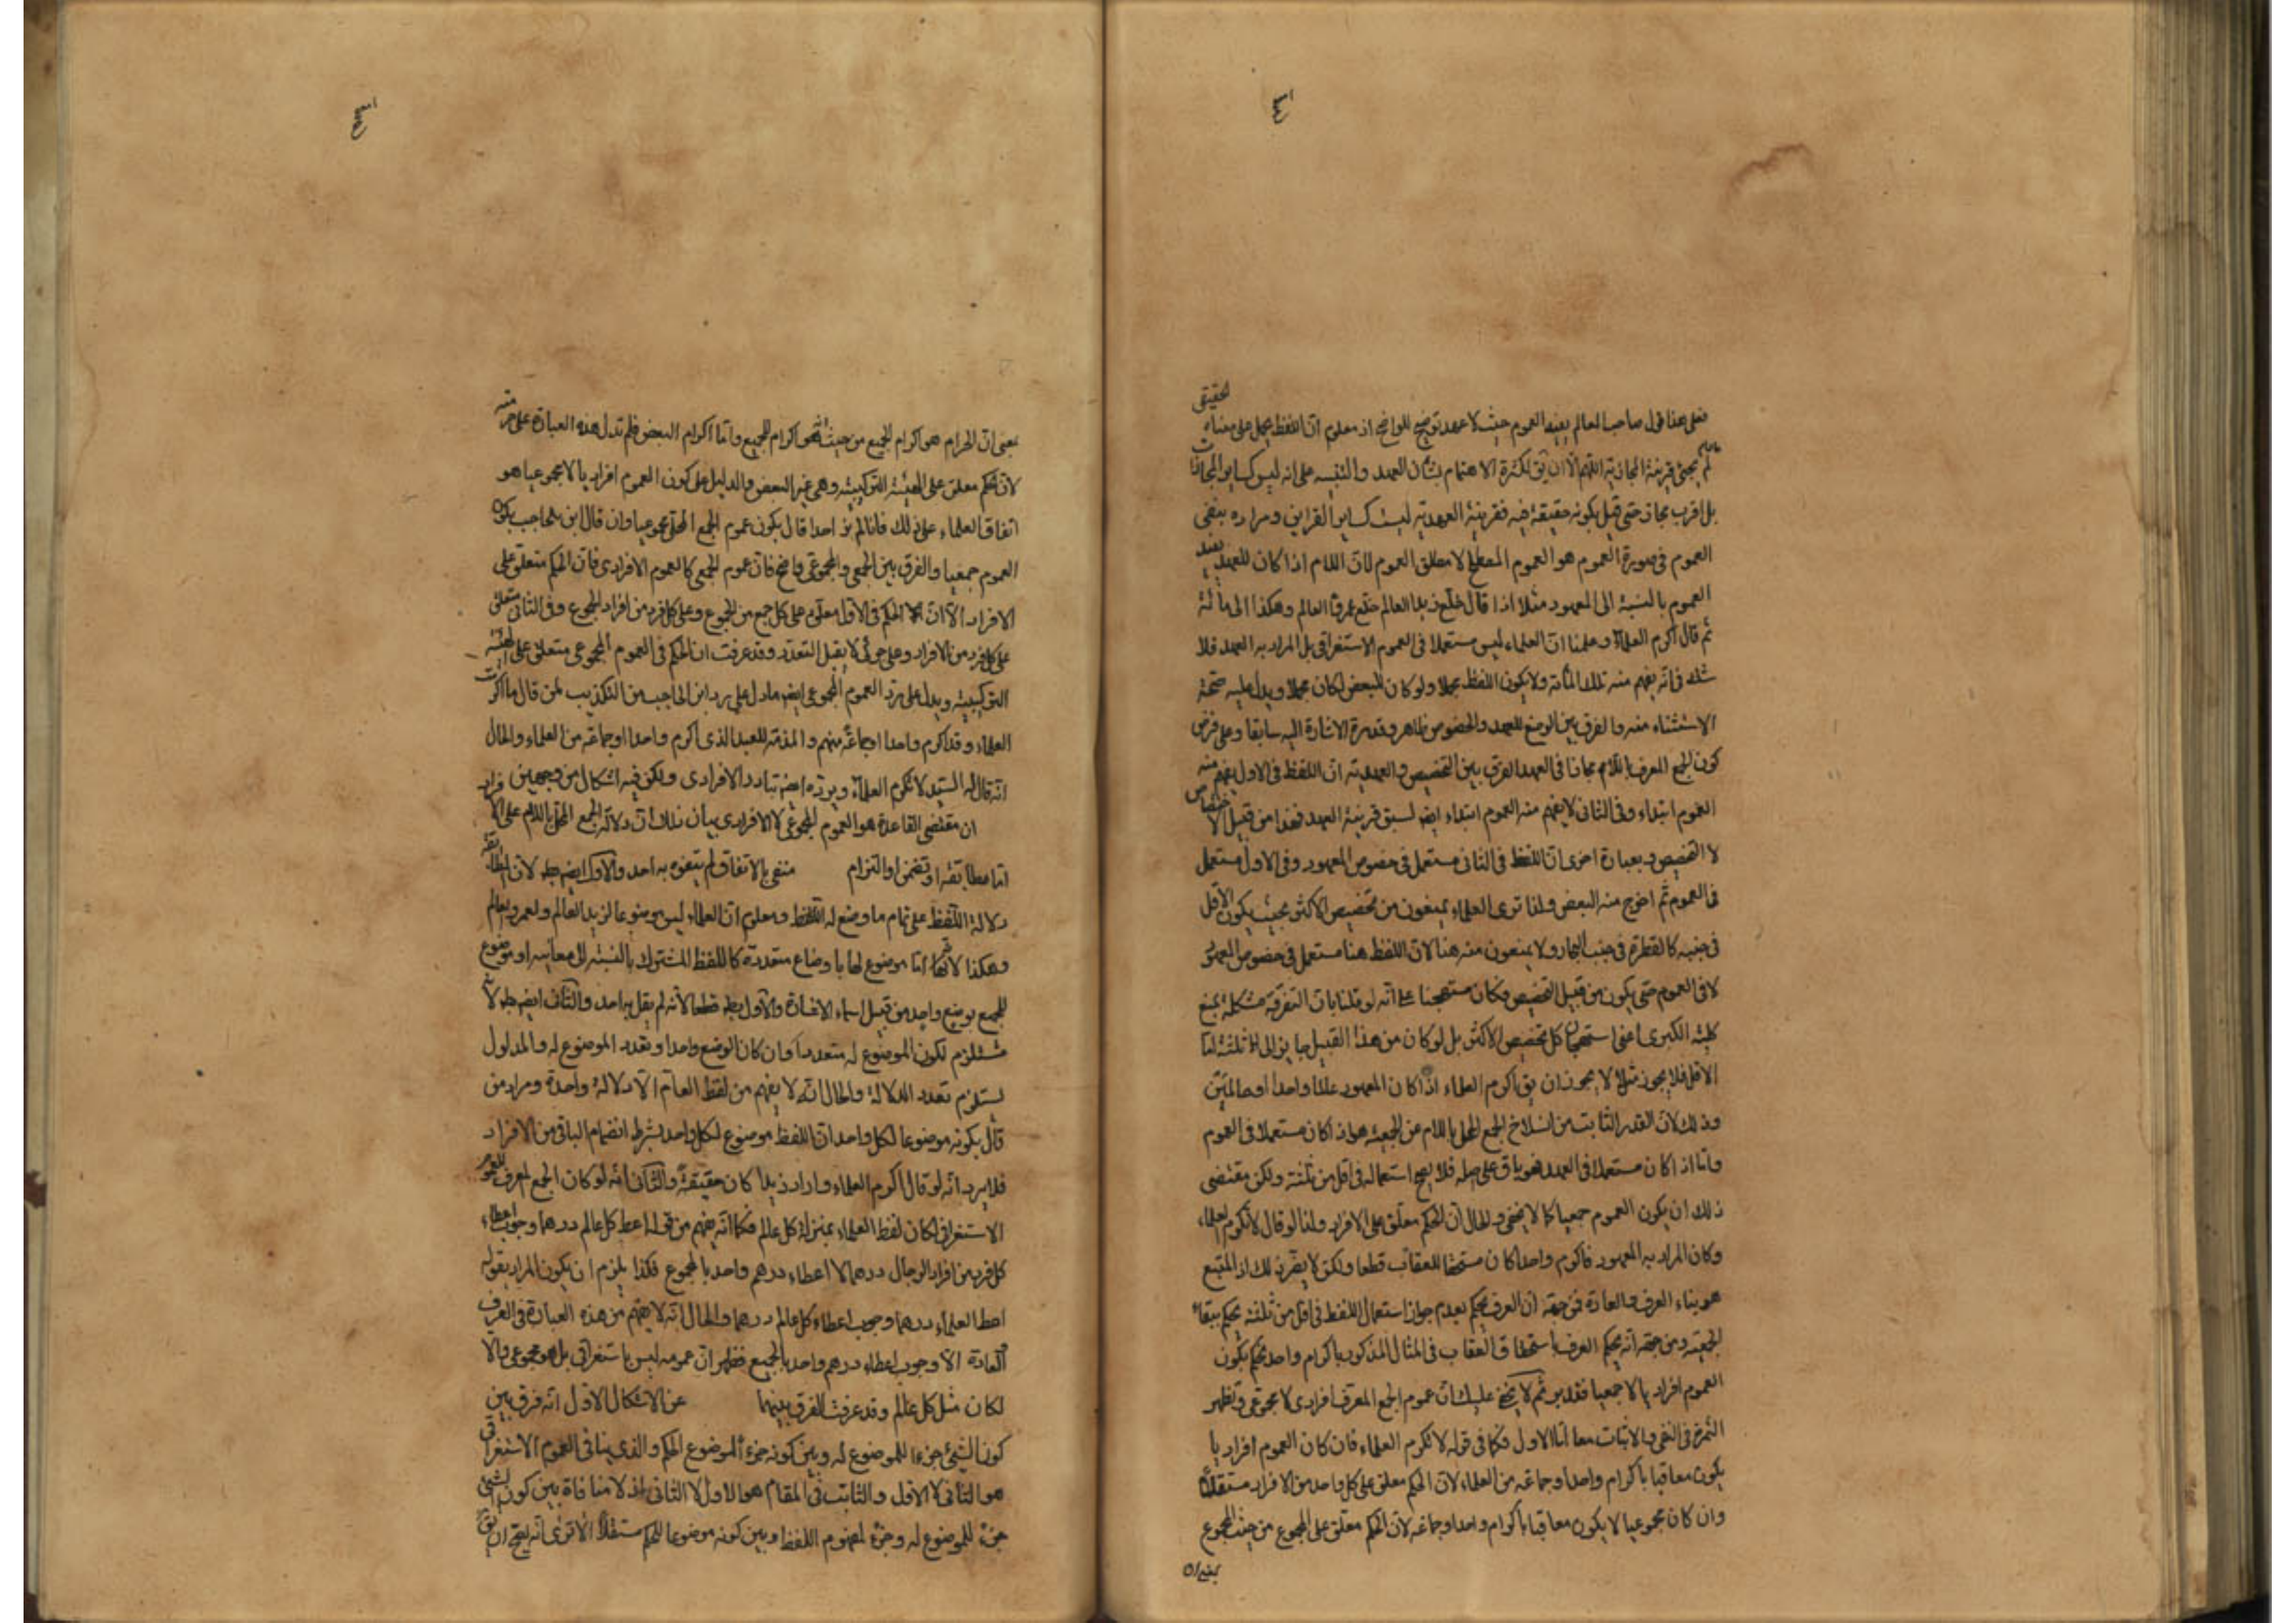 الحقيقى
فعلى هذا قول صاحب المعالم يفيد العموم حيث لا عهد توضيح للواضح اذ معلوم ان اللفظ يحمل على معناه
ما لم يجئ قرينة المجازية اللهم الا ان يق لكثرة الاهتمام بشأن العهد والتنبيه على انه ليس كساير المجازات
بل اقرب مجاز حتى قيل بكونه حقيقة فيه فقرينة العهدية ليست كساير القراين ومراده بنفى
العموم فى صورة العموم هو العموم المطلق لا مطلق العموم لان اللام اذا كان للعهد يفيد
العموم بالنسبة الى المعهود مثلا اذا قال خلع زيدا العالم خلع عمروا العالم وهكذا الى مائة
ثم قال اكرم العلماء وعلمنا ان العلماء ليس مستعملا فى العموم الاستغراقى بل المراد به العهد فلا
شك فى انه يفهم منه تلك المائة ولا يكون اللفظ مجملا ولو كان للبعض لكان مجملا ويدل عليه صحة
الاستثناء منه والفرق بين الوضع للعهد والخصوص ظاهر وقد مرة الاشارة اليه سابقا وعلى فرض
كون الجمع المعرف باللام مجازا فى العهد الفرق بين التخصيص والعهدية ان اللفظ فى الاول يفهم منه
العموم ابتداء وفى الثانى لا يفهم منه العموم ابتداء ايضا لسبق قرينة العهد فهذا من قبيل الاختصاص
لا التخصيص وبعبارة اخرى ان اللفظ فى الثانى مستعمل فى خصوص المعهود وفى الاول مستعمل
فى العموم ثم اخرج منه البعض ولذا ترى العلماء يمنعون من تخصيص الاكثر بحيث يكون الاقل
فى جنبه كالقطرة فى جنب البحار ولا يمنعون منه هنا لان اللفظ هنا مستعمل فى خصوص المعهود
لا فى العموم حتى يكون من قبيل التخصيص فكان مستهجنا على انه لو قلنا بان التفرقة مشكلة نمنع
كلية الكبرى اعنى استهجان كل تخصيص الاكثر بل لو كان من هذا القبيل جايز الى الثلثة اما
الاقل فلا يجوز مثلا لا يجوز ان يق اكرم العلماء اذا كان المعهود عالما واحدا او عالمين
وذلك لان القدر الثابت من انسلاخ الجمع المحلى باللام عن الجمعية هو اذا كان مستعملا فى العموم
واما اذا كان مستعملا فى العهد فهو باق على حاله فلا يصح استعماله فى اقل من ثلثة ولكن مقتضى
ذلك ان يكون العموم جمعيا كما لا يخفى والحال ان الحكم معلق على الافراد ولذا لو قال لا تكرم العلماء
وكان المراد به المعهود فاكرم واحدا كان مستحقا للعقاب قطعا ولكن لا يضر ذلك اذ المتبع
هو بناء العرف والعادة فمن جهة ان العرف يحكم بعدم جواز استعمال اللفظ فى اقل من ثلثة يحكم ببقاء
الجمعية ومن جهة انه يحكم العرف باستحقاق العقاب فى المثال المذكور باكرام واحد يحكم بكون
العموم افراديا لا جمعيا فتدبر ثم لا يخفى عليك ان عموم الجمع المعرف افرادى لا مجموعى وتظهر
الثمرة فى النفى والاثبات معا اما الاول فكما فى قوله لا تكرم العلماء فان كان العموم افراديا
يكون معاقبا باكرام واحد او جماعة من العلماء لان الحكم معلق على كل واحد من الافراد مستقلا
وان كان مجموعيا لا يكون معاقبا باكرام واحد او جماعة لان الحكم معلق على المجموع من حيث المجموع
بمعنى ان
بمعنى ان الحرام هو اكرام الجميع من حيث انه هو اكرام للجميع واما اكرام البعض فلم تدل هذه العبارة على حرمته
لان الحكم معلق على الهيئة التركيبية وهى غير البعض والدليل على كون العموم افراديا لا مجموعيا هو
اتفاق العلماء على ذلك فانا لم نر احدا قال بكون عموم الجمع المحلى مجموعيا وان قال ابن الحاجب بكون
العموم جمعيا والفرق بين الجمعى والمجموعى واضح فان عموم الجمعى كالعموم الافرادى فان الحكم متعلق على
الافراد الا ان الحكم فى الاول معلق على كل جمع من الجموع وعلى كل فرد من افراد الجموع وفى الثانى متعلق
على كل فرد من الافراد وعلى جزئى لا يقبل التعدد وقد عرفت ان الحكم فى العموم المجموعى متعلق على الهيئة
التركيبية ويدل على رد العموم المجموعى ايضا ما دل على رد ابن الحاجب من التكذيب لمن قال ما اكرمت
العلماء وقد اكرم واحدا او جماعة منهم والمذمة للعبد الذى اكرم واحدا او جماعة من العلماء والحال
انه قال له السيد لا تكرم العلماء ويرده ايضا تبادر الافرادى ولكن فيه اشكال من وجهين
ان مقتضى القاعدة هو العموم المجموعى لا الافرادى بيان ذلك ان دلالة الجمع المحلى باللام على الافراد
اما مطابقة او تضمن او التزام منفى بالاتفاق لم يتفوه به احد والاول ايضا بط لان المطابقة
دلالة اللفظ على تمام ما وضع له اللفظ ومعلوم ان العلماء ليس موضوعا لزيد العالم ولعمرو العالم
وهكذا لانها اما موضوع لها باوضاع متعددة كاللفظ المشترك بالنسبة الى معانيه او موضوع
للجميع بوضع واحد من قبيل اسماء الاشارة والاول بط قطعا لانه لم يقل به احد والثانى ايضا بط لانه
مستلزم لكون الموضوع له متعددا وان كان الوضع واحدا وتعدد الموضوع له والمدلول
يستلزم تعدد الدلالة والحال انه لا يفهم من لفظ العام الا دلالة واحدة ومراد من
قال بكونه موضوعا لكل واحد ان اللفظ موضوع لكل واحد بشرط انضمام الباقى من الافراد
فلا يرد انه لو قال اكرم العلماء واراد زيدا كان حقيقة والثانى انه لو كان الجمع المعرف للعموم
الاستغراقى لكان لفظ العلماء بمنزلة كل عالم فكما انه يفهم من قوله اعط كل عالم درهما وجوب اعطاء
كل فرد من افراد الرجال درهما لا اعطاء درهم واحد بالمجموع فكذا يلزم ان يكون المراد بقوله
اعط العلماء درهما وجوب اعطاء كل عالم درهما والحال انه لا يفهم من هذه العبارة فى العرف
والعادة الا وجوب اعطاء درهم واحد بالجميع فظهر ان عمومه ليس باستغراقى بل هو مجموعى والا
لكان مثل كل عالم وقد عرفت الفرق بينهما عن الاشكال الاول انه فرق بين
كون الشيئ جزءا للموضوع له وبين كونه جزءا لموضوع الحكم والذى ينافى العموم الاستغراقى
هو الثانى لا الاول والثابت فى المقام هو الاول لا الثانى اذ لا منافاة بين كون الشيئ
جزء للموضوع له وجزء لمفهوم اللفظ وبين كونه موضوعا للحكم مستقلا الا ترى انه يصح ان يق